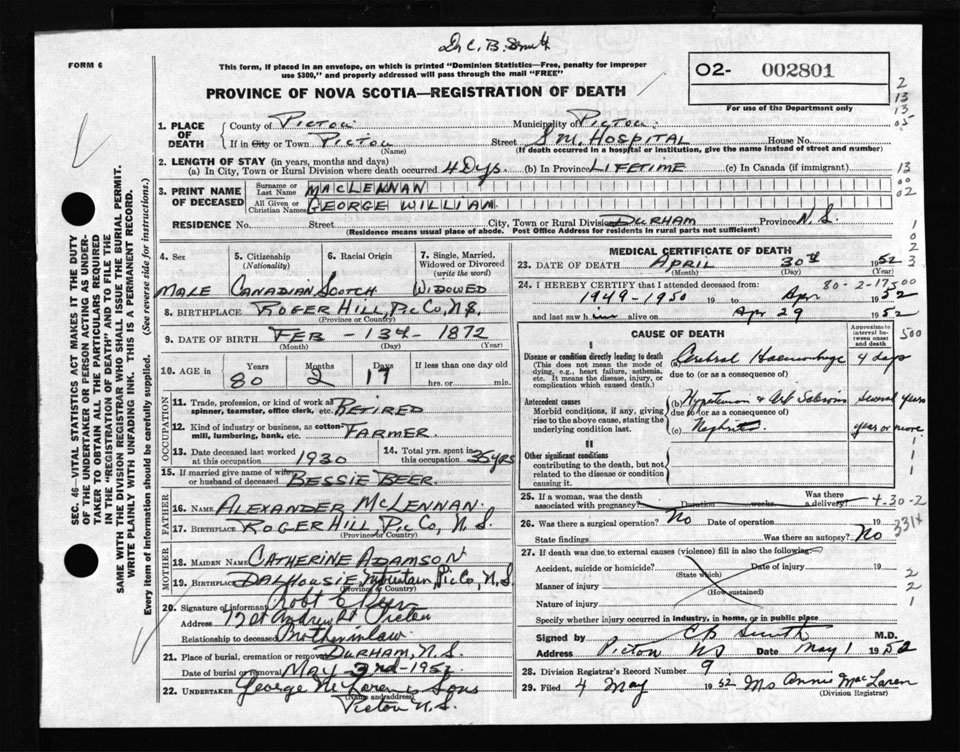 Dr C. B. Smith
FORM 6
This form, if placed in an envelope, on which is printed "Dominion Statistics—Free, penalty for improper
use $300," and properly addressed will pass through the mail "FREE"
02- 002801
PROVINCE OF NOVA SCOTIA—REGISTRATION OF DEATH
For use of the Department only
2
13
13
05
1. PLACE OF DEATH
County of Pictou Municipality of Pictou.
If in City or Town Pictou (Name) Street S.M. Hospital House No.
(If death occurred in a hospital or institution, give the name instead of street and number)
2. LENGTH OF STAY (in years, months and days)
(a) In City, Town or Rural Division where death occurred 4 Dys. (b) In Province Lifetime (c) In Canada (if immigrant)
13
00
02
3. PRINT NAME OF DECEASED
Surname or Last Name MACLENNAN
All Given or Christian Names GEORGE WILLIAM
RESIDENCE No. Street City, Town or Rural Division Durham Province N.S.
(Residence means usual place of abode. Post Office Address for residents in rural parts not sufficient)
1
0
2
3
4. Sex Male
5. Citizenship (Nationality) Canadian
6. Racial Origin Scotch
7. Single, Married, Widowed or Divorced (write the word) Widowed
8. BIRTHPLACE Roger Hill, Pic Co, N.S.
(Province or Country)
9. DATE OF BIRTH Feb 13th 1872
(Month) (Day) (Year)
10. AGE in Years 80 Months 2 Days 17 If less than one day old
hrs. or min.
OCCUPATION
11. Trade, profession, or kind of work as
spinner, teamster, office clerk, etc. Retired
12. Kind of industry or business, as cotton-
mill, lumbering, bank, etc. Farmer
13. Date deceased last worked
at this occupation 1930
14. Total yrs. spent in
this occupation 35 yrs
15. If married give name of wife
or husband of deceased Bessie Beer.
FATHER
16. Name Alexander McLennan.
17. Birthplace Roger Hill, Pic Co, N.S.
(Province or Country)
MOTHER
18. Maiden Name Catherine Adamson
19. Birthplace Dalhousie Mountain, Pic Co, N.S.
(Province or Country)
20. Signature of informant Robt
Address 12 St Andrew St Pictou
Relationship to deceased Brother in law
21. Place of burial, cremation or removal Durham, N.S.
Date of burial or removal May 3rd - 1952
22. UNDERTAKER George McLaren & Sons
(Name and address)
Pictou N.S.
MEDICAL CERTIFICATE OF DEATH
23. DATE OF DEATH April 30th 1952
(Month) (Day) (Year)
24. I HEREBY CERTIFY that I attended deceased from: 80-2-17 500
1949-1950 19 to Apr 1952
and last saw him alive on Apr 29 1952
CAUSE OF DEATH
Approximate interval between onset and death
500
I
Disease or condition directly leading to death
(This does not mean the mode of
dying, e.g., heart failure, asthenia,
etc. It means the disease, injury, or
complication which caused death.)
(a) Cerebral Haemorrhage 4 days
due to (or as a consequence of)
Antecedent causes
Morbid conditions, if any, giving
rise to the above cause, stating the
underlying condition last.
(b) & Several years
due to (or as a consequence of)
(c) Nephritis year or more
II
Other significant conditions
contributing to the death, but not
related to the disease or condition
causing it.
1
1
25. If a woman, was the death
associated with pregnancy? Duration weeks. Was there
a delivery? 4-30-2
26. Was there surgical operation? No Date of operation 19 331x
State findings Was there an autopsy? No
27. If death was due to external causes (violence) fill in also the following:
Accident, suicide or homicide? (State which) Date of injury 19
Manner of injury (How sustained)
Nature of injury
2
2
1
Specify whether injury occurred in industry, in home, or in public place
Signed by C B Smith M.D.
Address Pictou NS Date May 1 1952
28. Division Registrar's Record Number 9
29. Filed 4 May 1952 Mrs Annie MacLaren
(Division Registrar)
SEC. 46—VITAL STATISTICS ACT MAKES IT THE DUTY
OF THE UNDERTAKER OR PERSON ACTING AS UNDER-
TAKER TO OBTAIN ALL THE PARTICULARS REQUIRED
IN THE "REGISTRATION OF DEATH" AND TO FILE THE
SAME WITH THE DIVISION REGISTRAR WHO SHALL ISSUE THE BURIAL PERMIT.
WRITE PLAINLY WITH UNFADING INK. THIS IS A PERMANENT RECORD.
Every item of information should be carefully supplied. (See reverse side for instructions.)